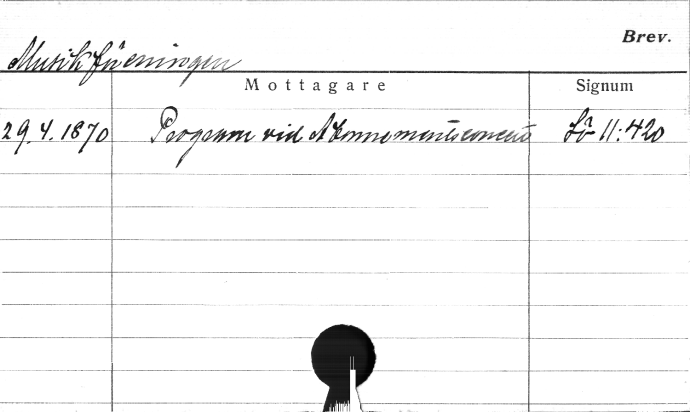 Brev.
Musikföreningen
Mottagare Signum
29.4.1870 Program vid Abonnementsconcert Lö 11:420